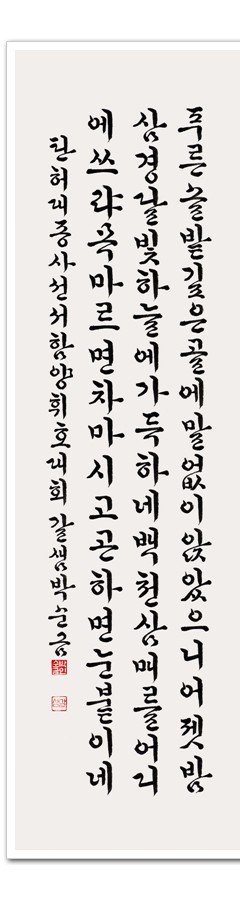 푸른솔밭깊은골에말없이앉았으니어젯밤
삼경달빛하늘에가득하네백천삼매를어디
에쓰랴목마르면차마시고곤하면눈붙이네
탄허대종사선서함양휘호대회 갈샘박순금